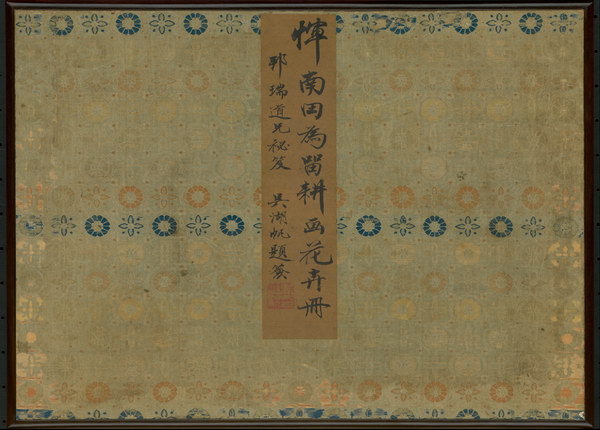 惲南田為留耕画花卉冊
邨瑞道兄秘笈 吳湖帆題簽